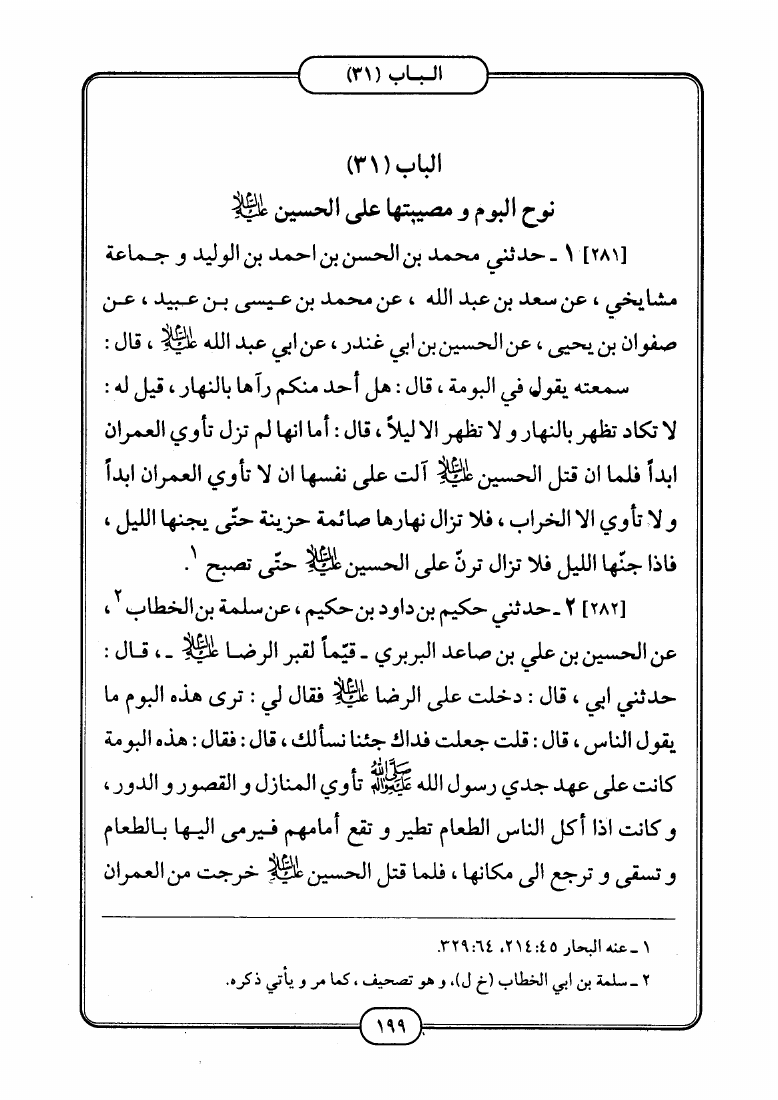 الباب (٣١)
الباب (٣١)
نوح البوم و مصيبتها على الحسين عليه السلام
[٢٨١] ١ ـ حدثني محمد بن الحسن بن احمد بن الوليد و جماعة
مشايخي ، عن سعد بن عبد الله ، عن محمد بن عيسى بن عبيد ، عن
صفوان بن يحيى ، عن الحسين بن ابي غندر ، عن ابي عبد الله عليه السلام ، قال :
سمعته يقول في البومة ، قال : هل أحد منكم رآها بالنهار ، قيل له :
لا تكاد تظهر بالنهار و لا تظهر الا ليلاً ، قال : أما انها لم تزل تأوي العمران
ابداً فلما ان قتل الحسين عليه السلام آلت على نفسها ان لا تأوي العمران ابداً
و لا تأوي الا الخراب ، فلا تزال نهارها صائمة حزينة حتّى يجنها الليل ،
فاذا جنّها الليل فلا تزال ترنّ على الحسين عليه السلام حتّى تصبح ١.
[٢٨٢] ٢ ـ حدثني حكيم بن داود بن حكيم ، عن سلمة بن الخطاب ٢ ،
عن الحسين بن علي بن صاعد البربري ـ قيّماً لقبر الرضا عليه السلام ـ ، قال :
حدثني ابي ، قال : دخلت على الرضا عليه السلام فقال لي : ترى هذه البوم ما
يقول الناس ، قال : قلت جعلت فداك جئنا نسألك ، قال : فقال : هذه البومة
كانت على عهد جدي رسول الله صلى الله عليه وآله تأوي المنازل و القصور و الدور ،
و كانت اذا أكل الناس الطعام تطير و تقع أمامهم فيرمى اليها بالطعام
و تسقى و ترجع الى مكانها ، فلما قتل الحسين عليه السلام خرجت من العمران
١ ـ عنه البحار ٤٥:٢١٤، ٦٤:٣٢٩.
٢ ـ سلمة بن ابي الخطاب (خ ل)، و هو تصحيف ، كما مر و يأتي ذكره.
١٩٩